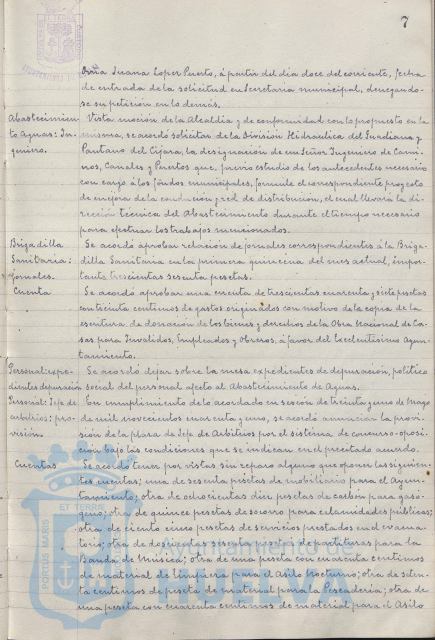 7
Doña Juana Lopez Puerto, á partir del dia doce del corriente, fecha
de entrada de la solicitud en Secretaria municipal, denegando-
se su petición en lo demás.
Abastecimien Vista moción de la Alcaldia y de conformidad con lo propuesto en la
to Aguas: In- misma, se acordó solicitar de la División Hidraulica del Guadiana y
geniero. Pantano del Cijara, la designación de un Señor Ingeniero de Cami-
nos, Canales y Puertos que, previo estudio de los antecedentes necesario
con cargo á los fondos municipales, formule el correspondiente proyecto
de mejora de la conducción y red de distribución, el cual llevará la di-
rección técnica del Abastecimiento durante el tiempo necesario
para efectuar los trabajos mencionados.
Brigadilla Se acordó aprobar relación de jornales correspondientes á la Briga-
Sanitaria: dilla Sanitaria en la primera quincena del mes actual, impor-
Jornales. tante trescientas sesenta pesetas.
Cuenta Se acordó aprobar una cuenta de trescientas cuarenta y siete pesetas
con treinta centimos de gastos originados con motivo de la copia de la
escritura de donación de los bienes y derechos de la Obra Nacional de Ca-
sas para Invalidos, Empleados y Obreros, á favor del Excelentisimo Ayun-
tamiento.
Personal: expe- Se acordó dejar sobre la mesa expedientes de depuración, politico
dientes depuración social del personal afecto al Abastecimiento de Aguas.
Personal: Jefe de En cumplimiento de lo acordado en sesión de treinta y uno de Mayo
arbitrios: pro- de mil novecientos cuarenta y uno, se acordó anunciar la provi-
visión. sión de la plaza de Jefe de Arbitrios por el sistema de concurso-oposi-
ción bajo las condiciones que se indican en el precitado acuerdo.
Cuentas Se acordó tener por vistas sin reparo alguno que oponer las siguien-
tes cuentas; una de sesenta pesetas de mobiliario para el Ayun-
tamiento; otra de ochocientas diez pesetas de carbón para gasó-
geno; otra de quince pesetas de socorro para calamidades públicas;
otra de ciento cinco pesetas de servicios prestados en el crema-
torio; otra de doscientas sesenta pesetas de partituras para la
Banda de Música; otra de una peseta con cuarenta centimos
de material de limpieza para el Asilo Nocturno; otra de seten-
ta centimos de peseta de material para la Pescaderia; otra de
una peseta con cuarenta centimos de material para el Asilo
ET TERRA
PORTUS MARIS
Ayuntamiento de